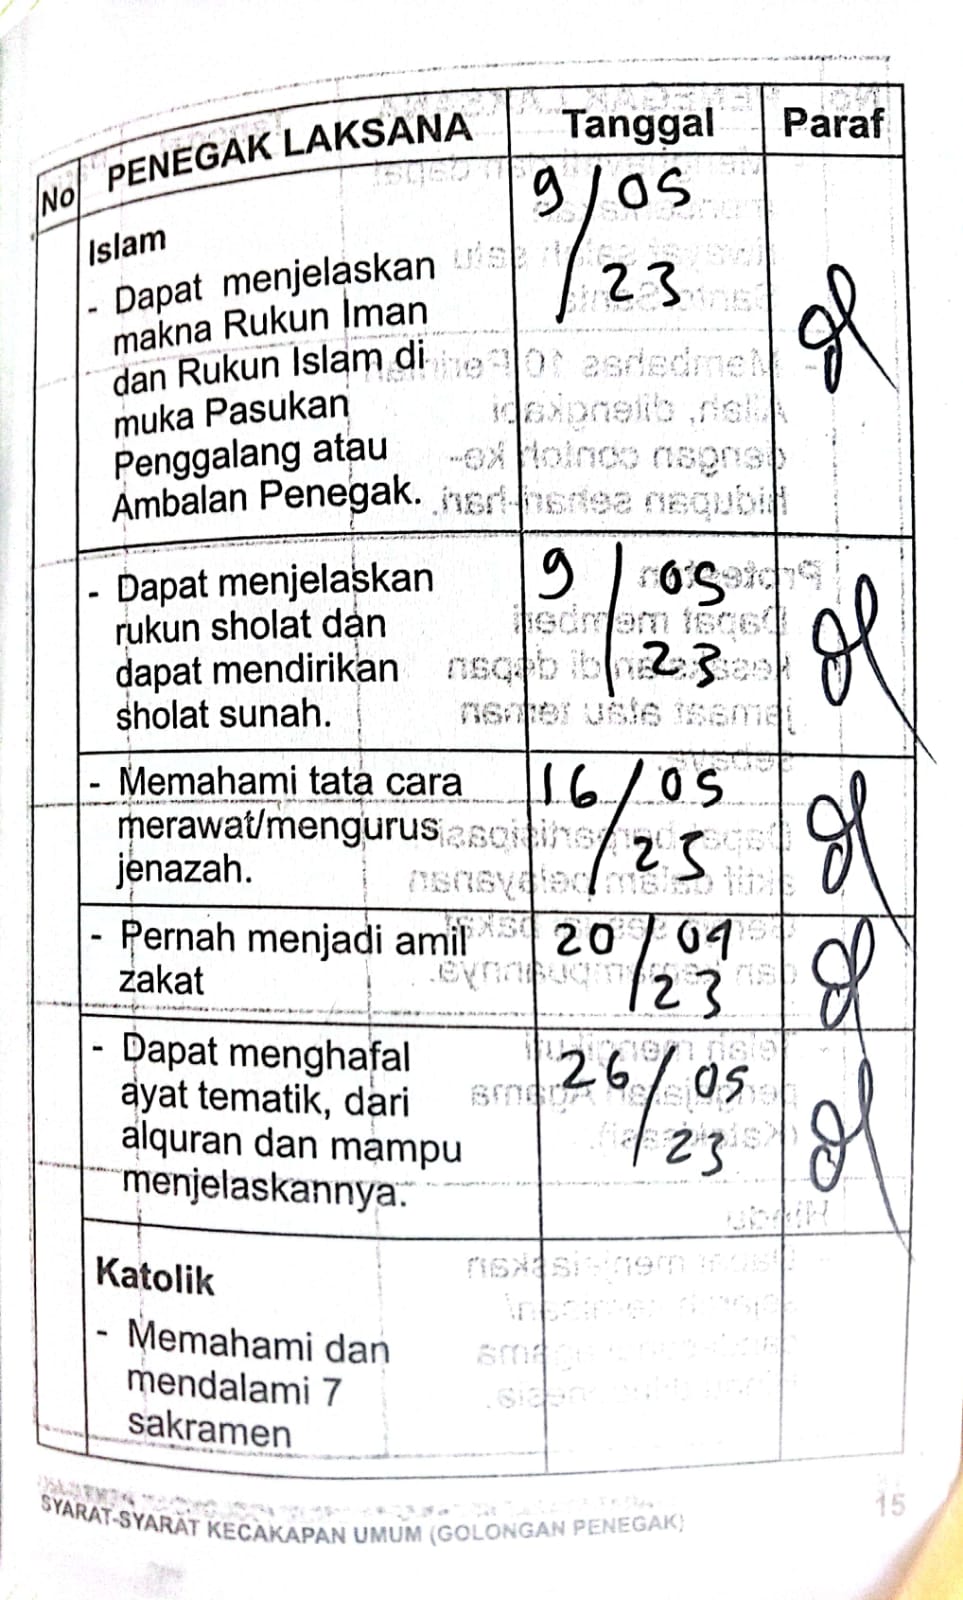 No PENEGAK LAKSANA Tanggal Paraf
Islam
- Dapat menjelaskan
makna Rukun Iman
dan Rukun Islam di
muka Pasukan
Penggalang atau
Ambalan Penegak.
9/05
/23
- Dapat menjelaskan
rukun sholat dan
dapat mendirikan
sholat sunah.
9/05
/23
- Memahami tata cara
merawat/mengurus
jenazah.
16/05
/23
- Pernah menjadi amil
zakat
20/04
/23
- Dapat menghafal
ayat tematik, dari
alquran dan mampu
menjelaskannya.
26/05
/23
Katolik
- Memahami dan
mendalami 7
sakramen
SYARAT-SYARAT KECAKAPAN UMUM (GOLONGAN PENEGAK)
15